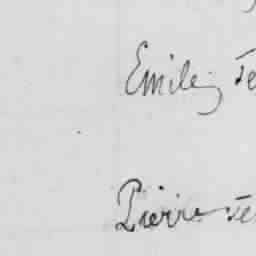 Emile
Pierre